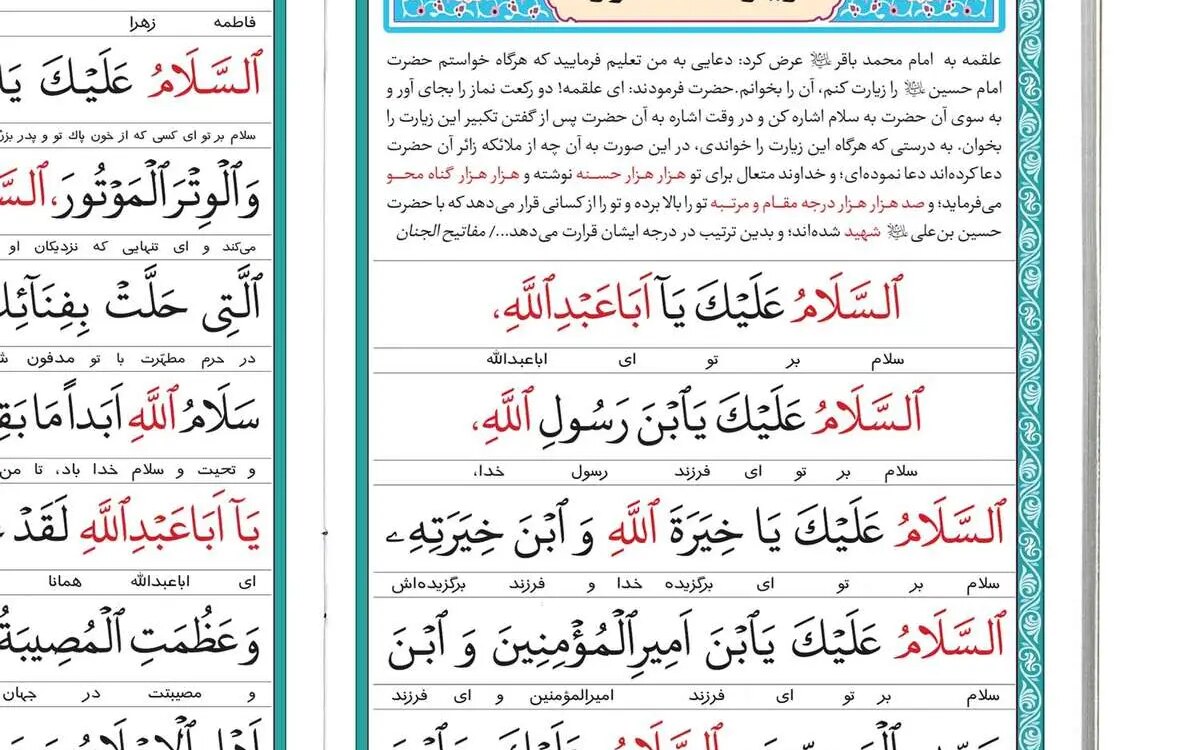 علقمه به امام محمد باقر علیه السلام عرض کرد: دعایی به من تعلیم فرمایید که هرگاه خواستم حضرت
امام حسین علیه السلام را زیارت کنم، آن را بخوانم.حضرت فرمودند: ای علقمه! دو رکعت نماز را بجای آور و
به سوی آن حضرت به سلام اشاره کن و در وقت اشاره به آن حضرت پس از گفتن تکبیر این زیارت را
بخوان. به درستی که هرگاه این زیارت را خواندی، در این صورت به آن چه از ملائکه زائر آن حضرت
دعا کرده‌اند دعا نموده‌ای؛ و خداوند متعال برای تو هزار هزار حسـنه نوشته و هزار هزار گناه محـو
می‌فرماید؛ و صد هزار هزار درجه مقـام و مرتبـه تو را بالا برده و تو را از کسانی قرار می‌دهد که با حضرت
حسین بن‌علی علیه السلام شهید شده‌اند؛ و بدین ترتیب در درجه ایشان قرارت می‌دهد.../ مفاتیح الجنان
اَلسَّلَامُ عَلَيْكَ يَآ اَبَاعَبْدِاللَّهِ،
سلام بر تو ای اباعبدالله
اَلسَّلَامُ عَلَيْكَ يَابْنَ رَسُولِ اللَّهِ،
سلام بر تو ای فرزند رسول خدا،
اَلسَّلَامُ عَلَيْكَ يَا خِيَرَةَ اللَّهِ وَ ابْنَ خِيَرَتِهِ
سلام بر تو ای برگزیده خدا و فرزند برگزیده‌اش
اَلسَّلَامُ عَلَيْكَ يَابْنَ اَمِيرِالْمُؤْمِنِينَ وَ ابْنَ
سلام بر تو ای فرزند امیرالمؤمنین و ای فرزند
فاطمه زهرا
اَلسَّلَامُ عَلَيْكَ يَا
سلام بر تو ای کسی که از خون پاك تو و پدر
وَالْوِتْرَ الْمَوْتُورَ،
می‌کند و ای تنهایی که نزدیکان او
الَّتِى حَلَّتْ
در حرم مطهّرت با تو مدفون
سَلَامُ اللَّهِ اَبَداً مَا
و تحیت و سلام خدا باد، تا من
يَآ اَبَاعَبْدِاللَّهِ لَقَدْ
ای اباعبدالله همانا
وَ عَظُمَتِ الْمُصِيبَةُ
و مصیبتت در جهان